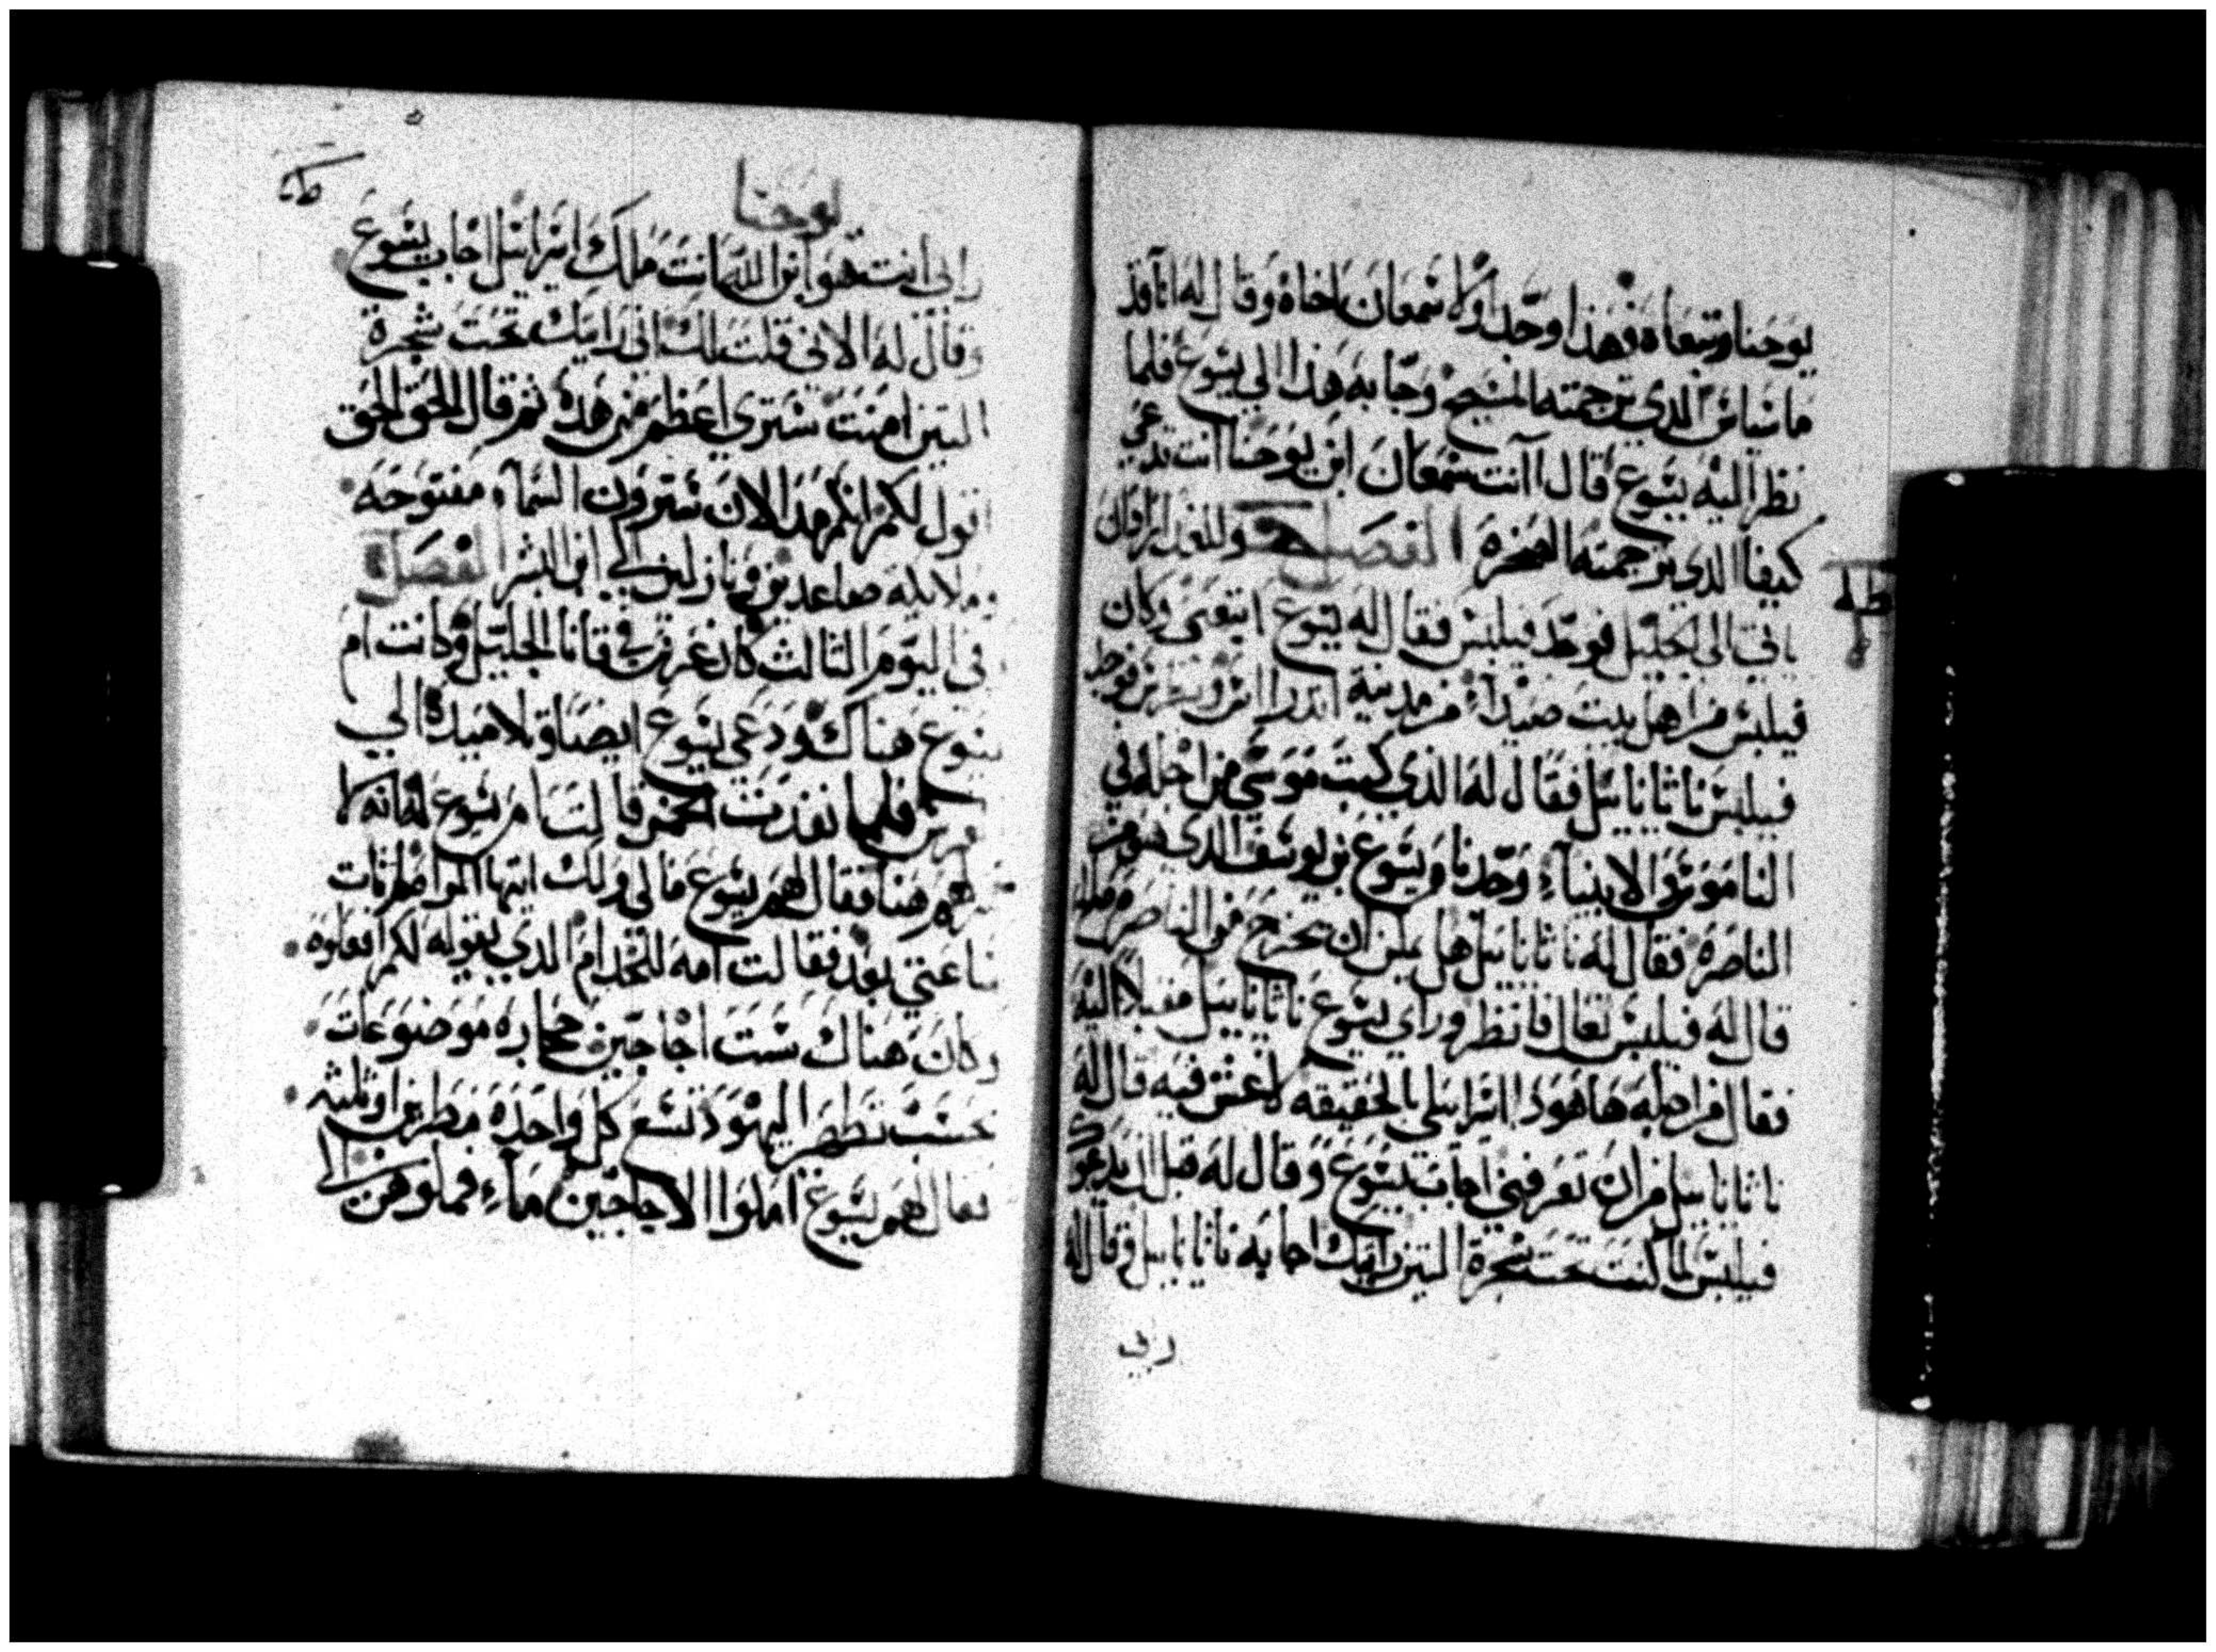 يوحنا وتبعاه فهذا وجد اولا شمعان اخاه وقال له انا قد
ماسياس الدي ترجمته المسيح وجا به هذا الي يسوع فلما
نظر اليه يسوع قال انت شمعان ابن يوحنا انت تدعي
كيفا الدي ترجمته الصخره الفصل وللغد اراد ان
ياتي الى الجليل فوجد فيلبس فقال له يسوع اتبعني وكان
فيلبس من اهل بيت صيدا من مدينة اندراس وبطرس فوجد
فيلبس ناثاناييل فقال له الذي كتب موسي من اجله في
الناموس والانبياء وجدنا يسوع بن يوسف الدي هو من
الناصره فقال له ناثاناييل هل يمكن ان يخرج من الناصره
قال له فيلبس تعال فانظر وراي يسوع ناثاناييل مقبلا اليه
فقال من اجله هاهودا اسراييلي بالحقيقه لا غش فيه قال له
ناثاناييل من اين تعرفني اجاب يسوع وقال له قبل ان يدعوك
فيلبس لما كنت تحت شجرة التين رايتك اجابه ناثاناييل وقال له
ربي
يوحنا
رابي انت هو ابن الله انت ملك اسراييل اجاب يسوع
وقال له الاني قلت لك اني رايتك تحت شجرة
التين امنت سترى اعظم من هده ثم قال الحق الحق
اقول لكم انكم من الان سترون السماء مفتوحه
وملايكه صاعدين ونازلين الي ابن البشر الفصل
في اليوم الثالث كان عرس في قانا الجليل وكانت ام
يسوع هناك ودعي يسوع ايضا وتلاميده الي
العرس فلما نفدت الخمر قالت ام يسوع له انه لا
خمر لهم هنا فقال لهم يسوع ما لي ولك ايتها المراه لم تات
ساعتي بعد فقالت امه للخدام الدي يقوله لكم افعلوه
وكان هناك ست اجاجين حجاره موضوعات
حسب تطهر اليهود تسع كل واحده مطرين او ثلثه
فقال لهم يسوع املوا الاجاجين ماء فملوهن الى